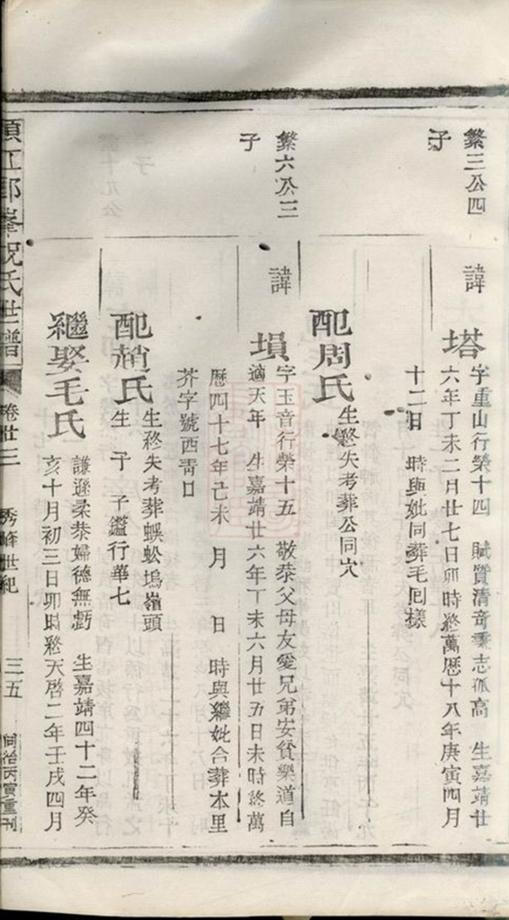 繁三公四
子
諱
塔
字重山行榮十四 賦質清奇秉志孤高 生嘉靖廿
六年丁未二月廿七日卯時終萬曆十八年庚寅四月
十二日 時與妣同葬毛囘樣
配周氏
生終失考葬公同穴
繁六公三
子
諱
塤
字玉音行榮十五 敬恭父母友愛兄弟安貧樂道自
適天年 生嘉靖廿六年丁未六月廿五日未時終萬
曆四十七年己未 月 日 時與繼妣合葬本里
芥字號西靑口
配趙氏
生終失考葬蜈蚣塢嶺頭
生 子 子鑑行華七
繼娶毛氏
謙遜柔恭婦德無虧 生嘉靖四十二年癸
亥十月初三日卯時終天啓二年壬戌四月
江郎峯祝氏世譜
卷廿三
秀峰世紀
三五
同治丙寅重刊